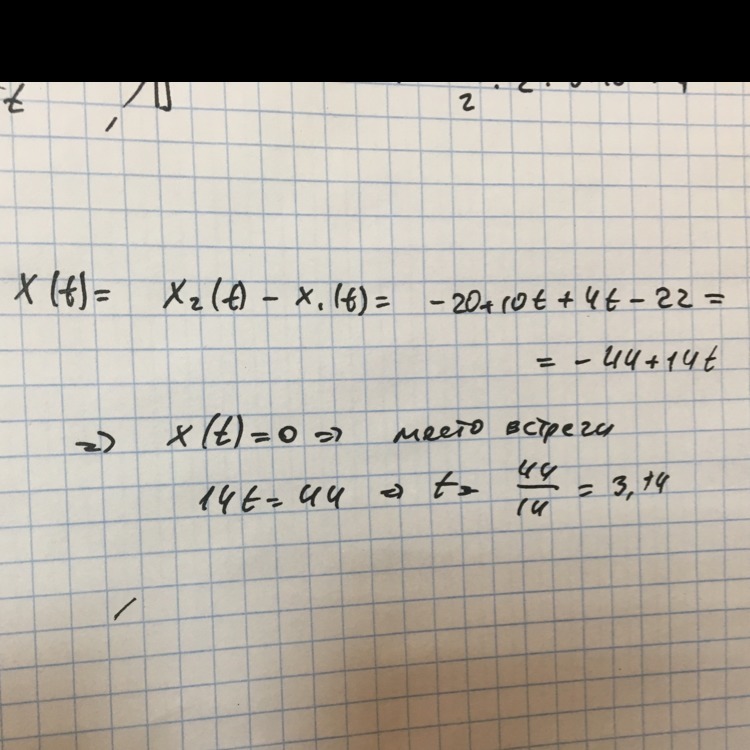 X(t) = X₂(t) - x₁(t) = -20+10t + 4t - 22 =
= -44+14t
=> x(t) = 0 => место встречи
14t = 44 => t = 44/14 = 3,14